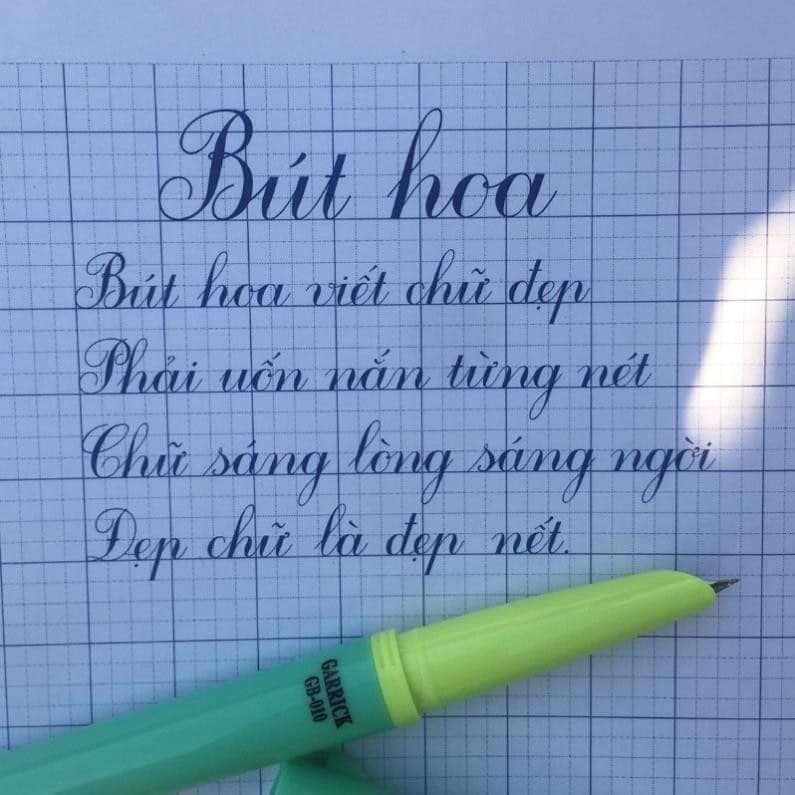 Bút hoa
Bút hoa viết chữ đẹp
Phải uốn nắn từng nét
Chữ sáng lòng sáng ngời
Đẹp chữ là đẹp nết.
GARRICK
GB-010